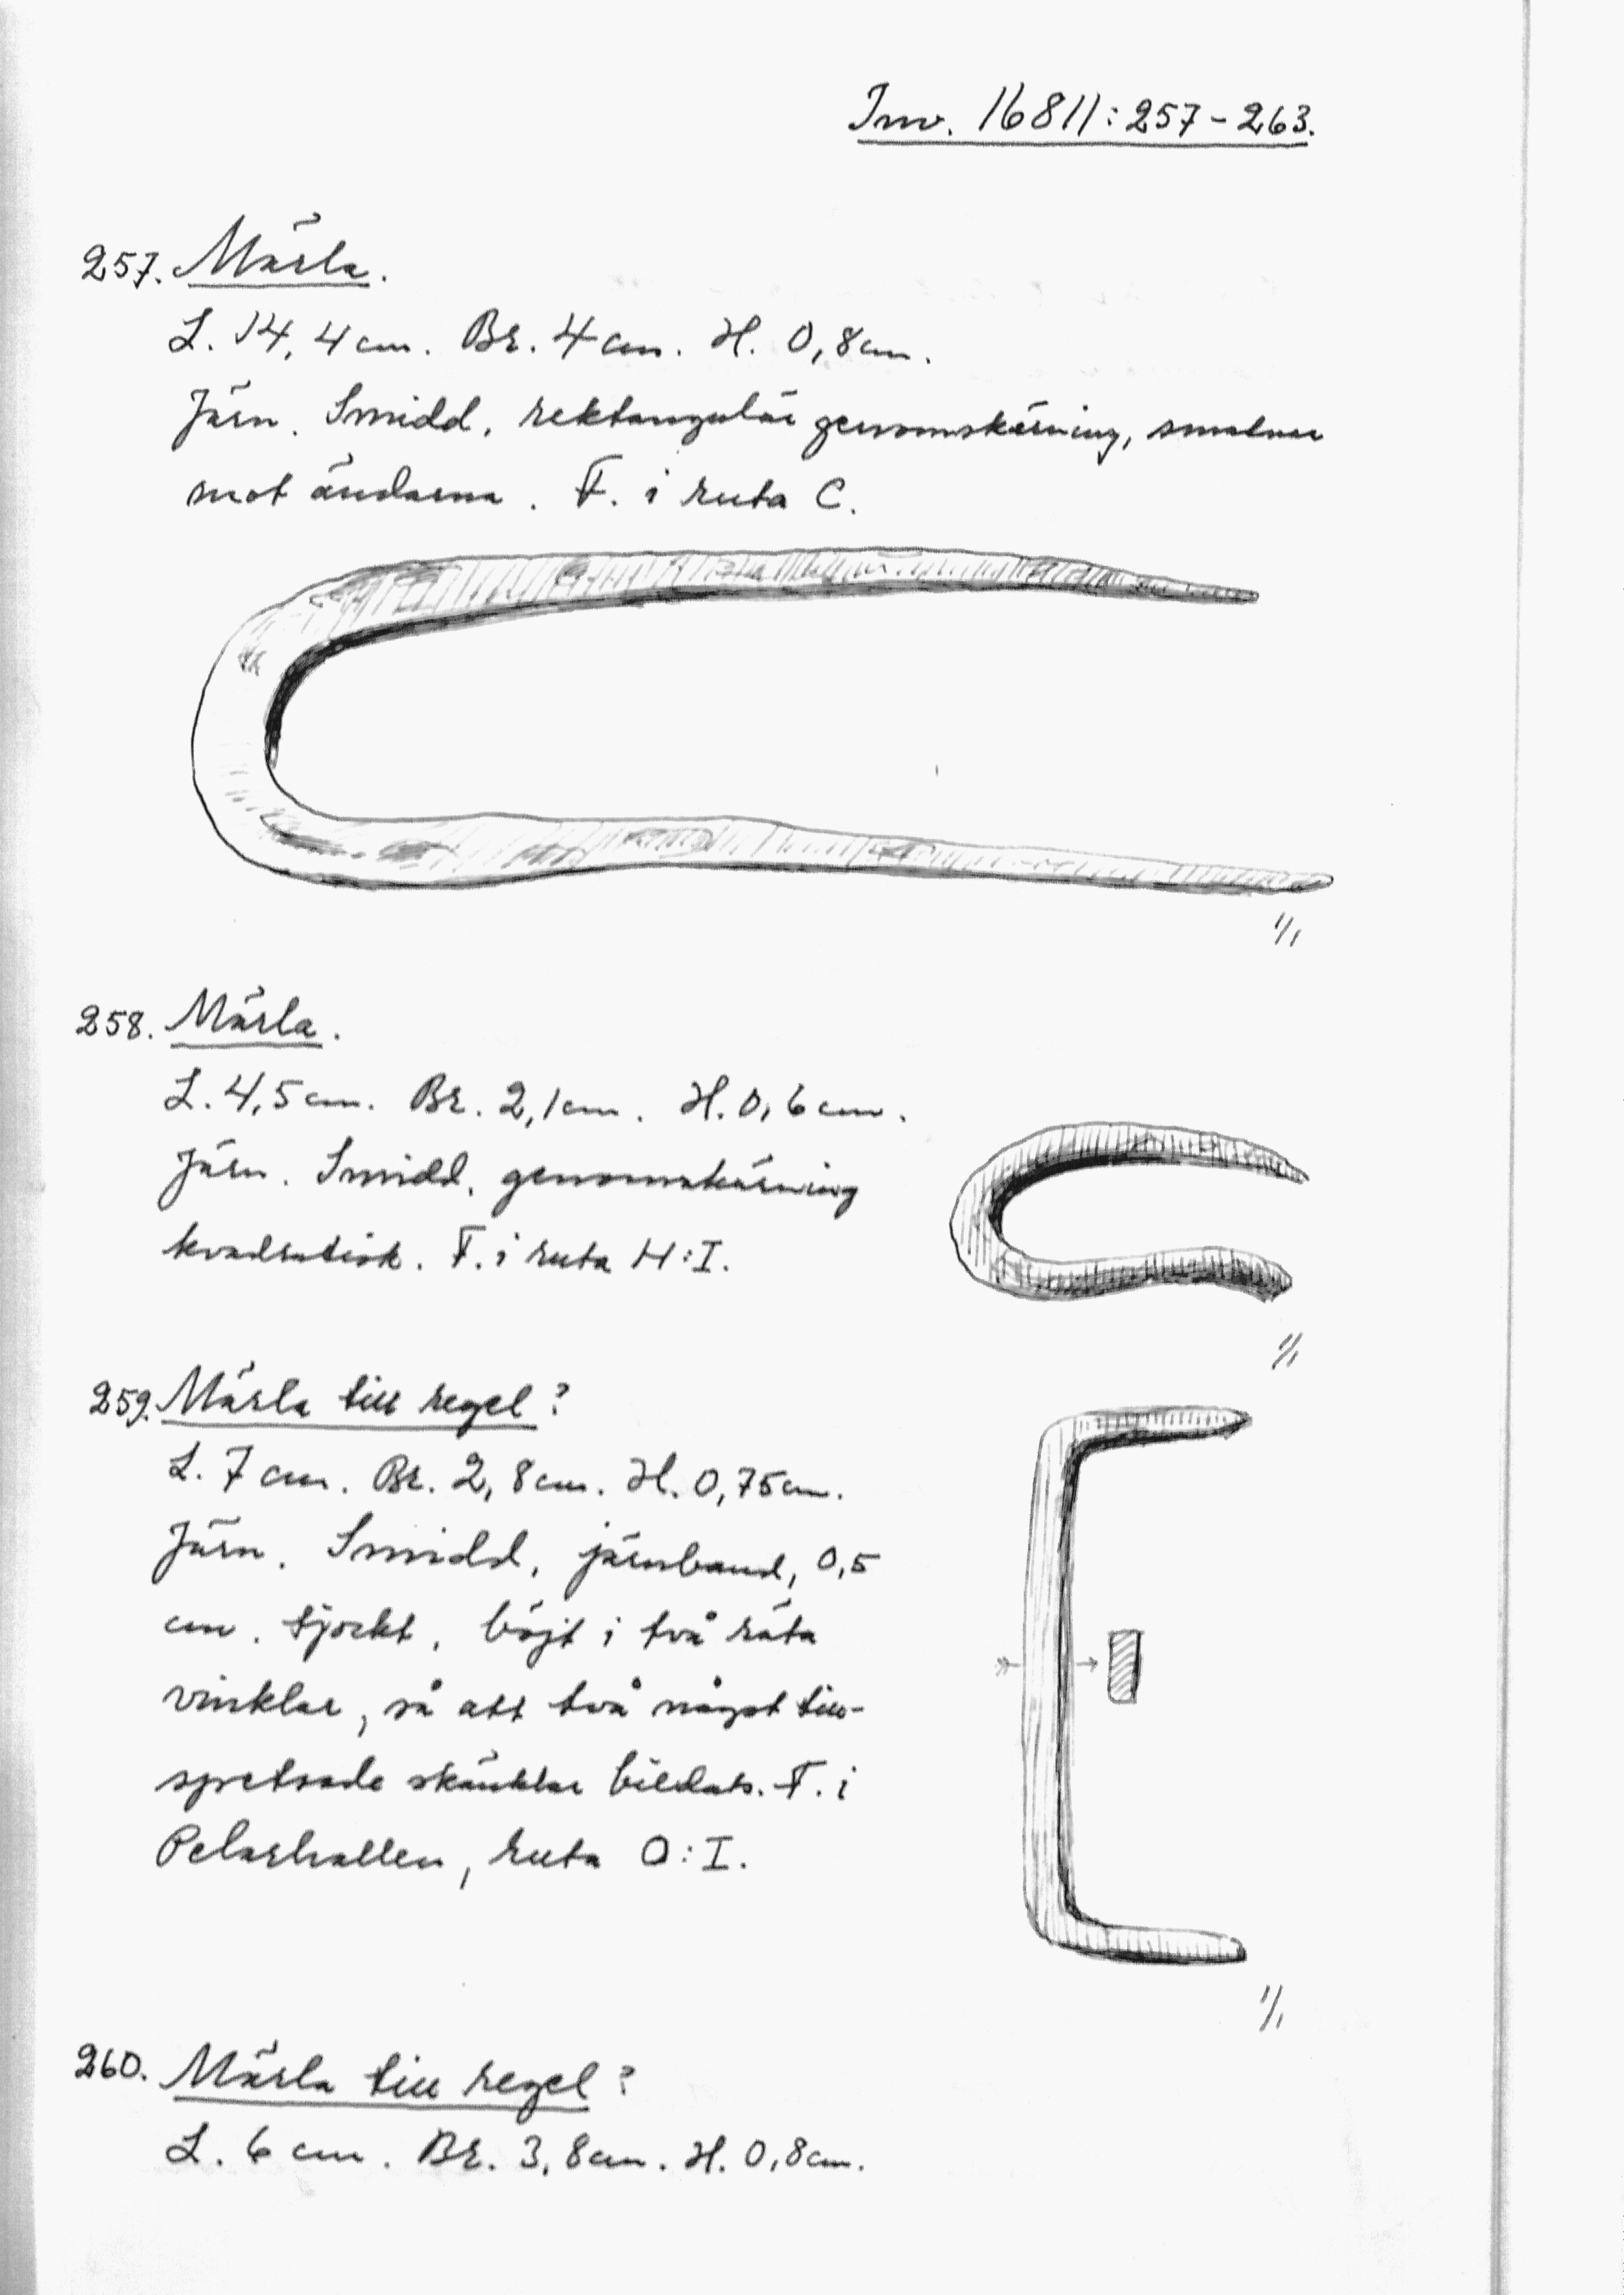 Inv. 16811:257-263.
257. Märla.
L. 14,4 cm. Br. 4 cm. H. 0,8 cm.
Järn. Smidd, rektangulär genomskärning, smalnar
mot ändarna. F. i ruta C.
1/1
258. Märla.
L. 4,5 cm. Br. 2,1 cm. H. 0,6 cm.
Järn. Smidd, genomskärning
kvadratisk. F. i ruta H:I.
1/1
259. Märla till regel?
L. 7 cm. Br. 2,8 cm. H. 0,75 cm.
Järn. Smidd, järnband, 0,5
cm. tjockt, böjt i två räta
vinklar, så att två något till-
spetsade skänklar bildats. F. i
Pelarhallen, ruta O:I.
1/1
260. Märla till regel?
L. 6 cm. Br. 3,8 cm. H. 0,8 cm.